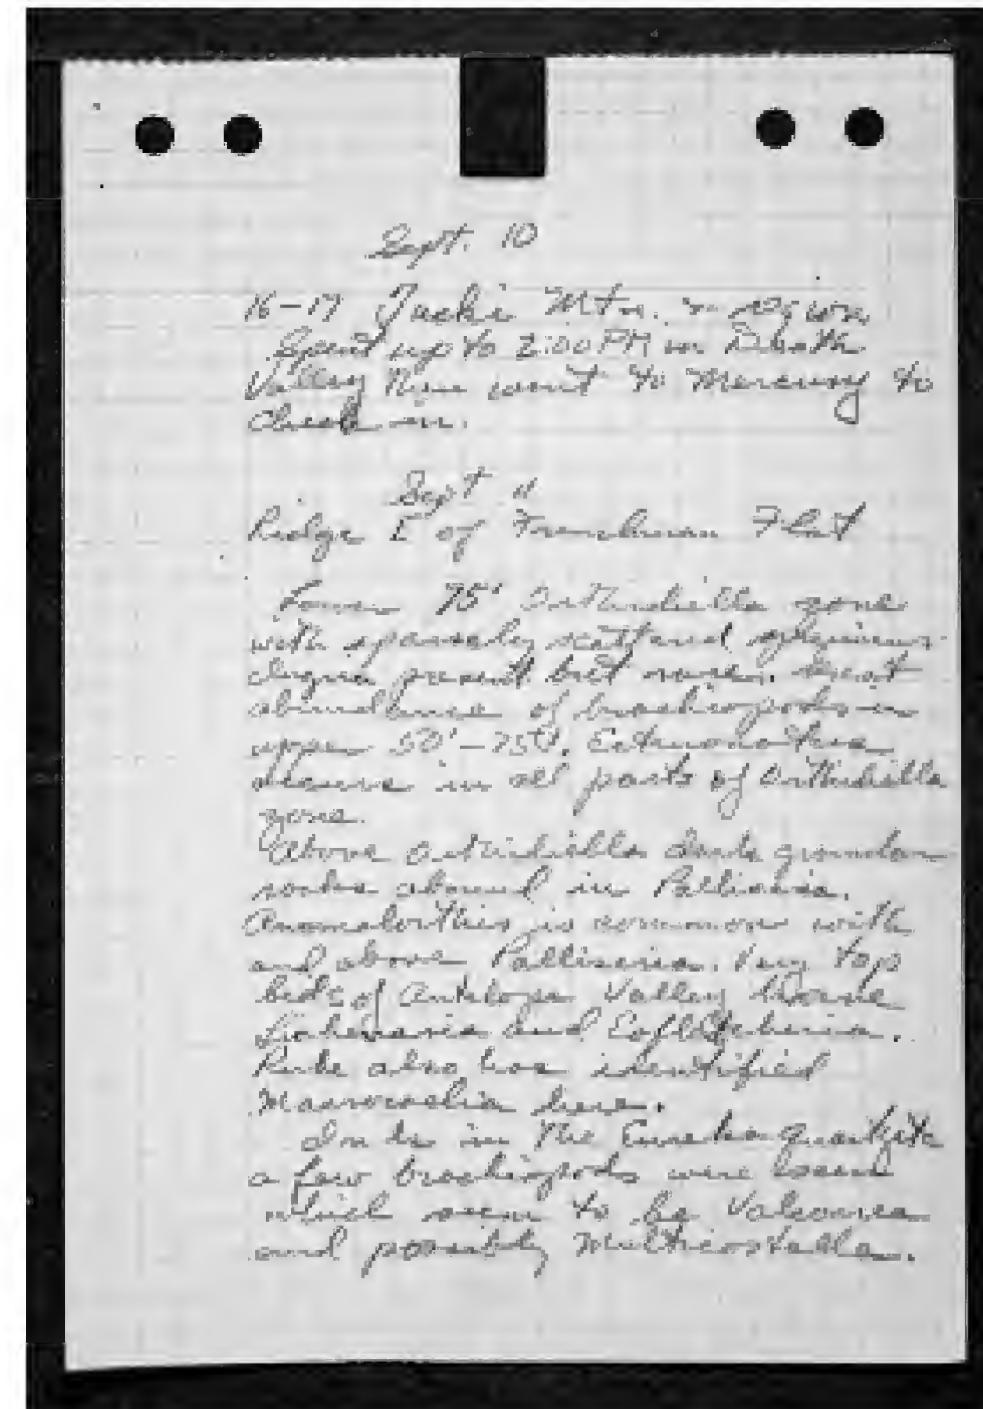 Sept. 10
16-17 Tucki Mtn. region
Spent up to 2:00 PM in Death
Valley then went to Mercury to
check in.
Sept 11
Ridge E of Frenchman Flat
Lower 75' Orthidiella zone
with sparsely scattered specimens.
present but rare. Great
abundance of brachiopods in
upper 50'-75'. Ectenonotus
occurs in all parts of Orthidiella
zone.
Above Orthidiella beds
rocks abound in Palliseria.
Anomalorthis is common with
and above Palliseria. Very top
beds of Antelope Valley
and
also has identified
here.
In the Eureka quartzite
a few brachiopods were seen
which seem to be Valcourea
and possibly Multicostella.